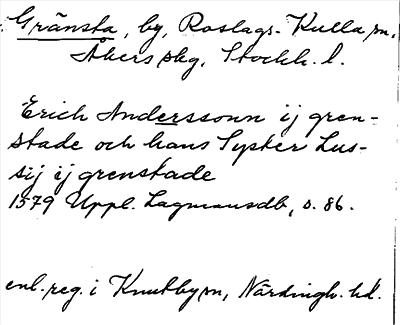 Gränsta, by, Roslags-Kulla sn,
Åkers skg, Stockh. l.
Erich Anderssonn ij gren-
stade och hans Syster Lus-
sij ij grenstade
1579 Uppl. Lagmansdb, s. 86.
enl. reg. i Knutby sn, Närdingh. hd.